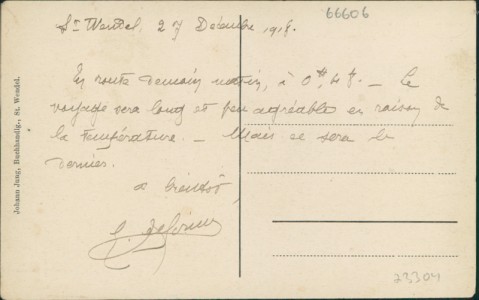 66606
St Wendel, 27 Décembre 1918.
En route demain matin, à 0H,47. - Le
voyage sera long et peu agréable en raison de
la température. - Mais ce sera le
dernier.
à bientôt,
Johann Jung, Buchhandlg., St. Wendel.
23304